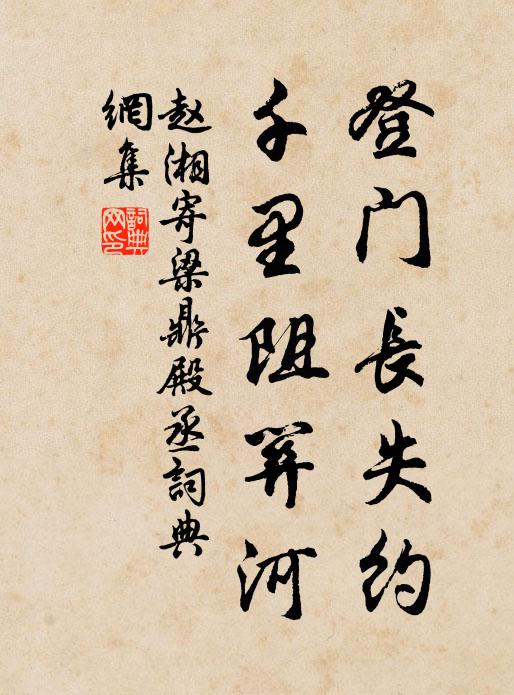 登门長失约
千里阻关河
赵湘寄梁鼎殿丞詞典
網集
詞典
网印